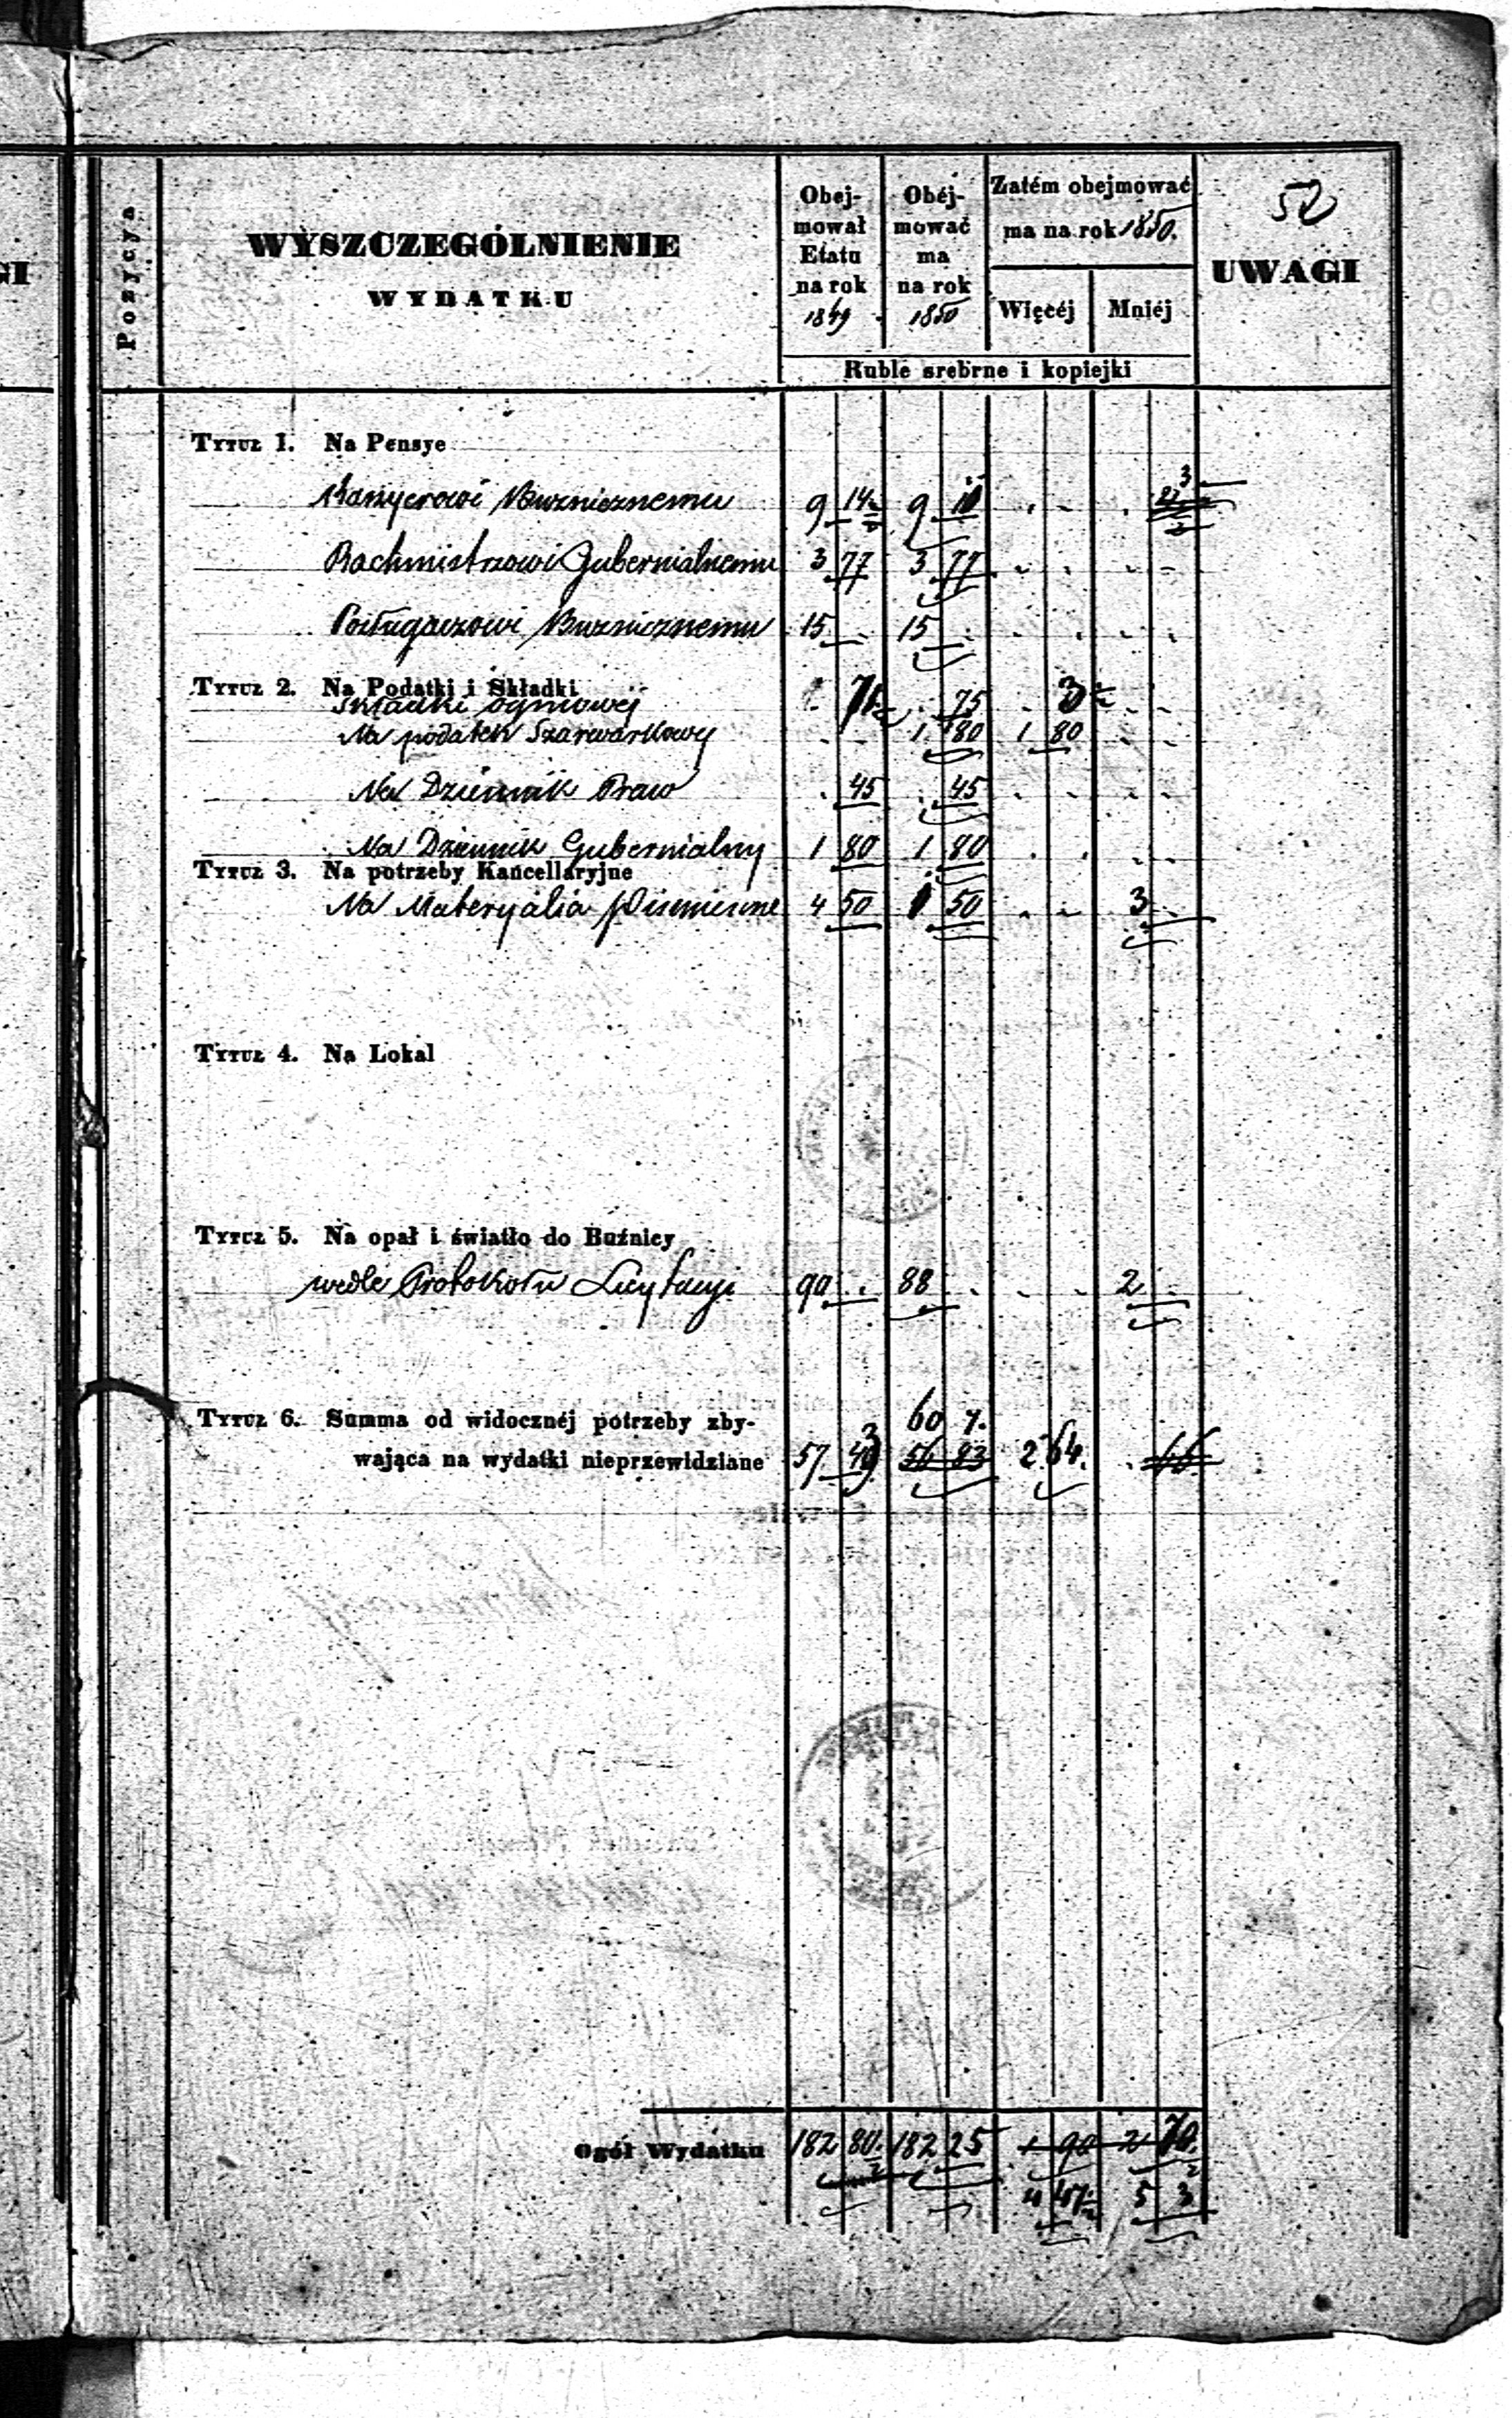 52
GI
Pozycya
WYSZCZEGÓLNIENIE
WYDATKU
Obej-
mował
Etatu
na rok
1849
Obéj-
mować
ma
na rok
1850
Zatém obejmować
ma na rok 1850.
Więcéj
Mniéj
UWAGI
Ruble srebrne i kopiejki
Tytuł 1. Na Pensye
Kassyerowi Buznicznemu 9 14 9 3
Rachmistrzowi Gubernialnemu 3 77 3 77
Posługaczowi Buznicznemu 15 15
Tytuł 2. Na Podatki i Składki
Składki ogniowej 75
Na podatek Szarwarkowy 1 80 1 80
Na Dziennik Praw 45 45
Na Dziennik Gubernialny 1 80 1 80
Tytuł 3. Na potrzeby Kancellaryjne
Na Materyalia piśmienne 4 50 1 50 3
Tytuł 4. Na Lokal
Tytuł 5. Na opał i światło do Buźnicy
wedle Protokołu Licytacyi 90 88 2
Tytuł 6. Summa od widocznéj potrzeby zby- 60 7.
wająca na wydatki nieprzewidziane 57 56 83 2 64. 66
Ogół Wydatku 182 80. 182 25 1 90 2 70.
4 47 5 3